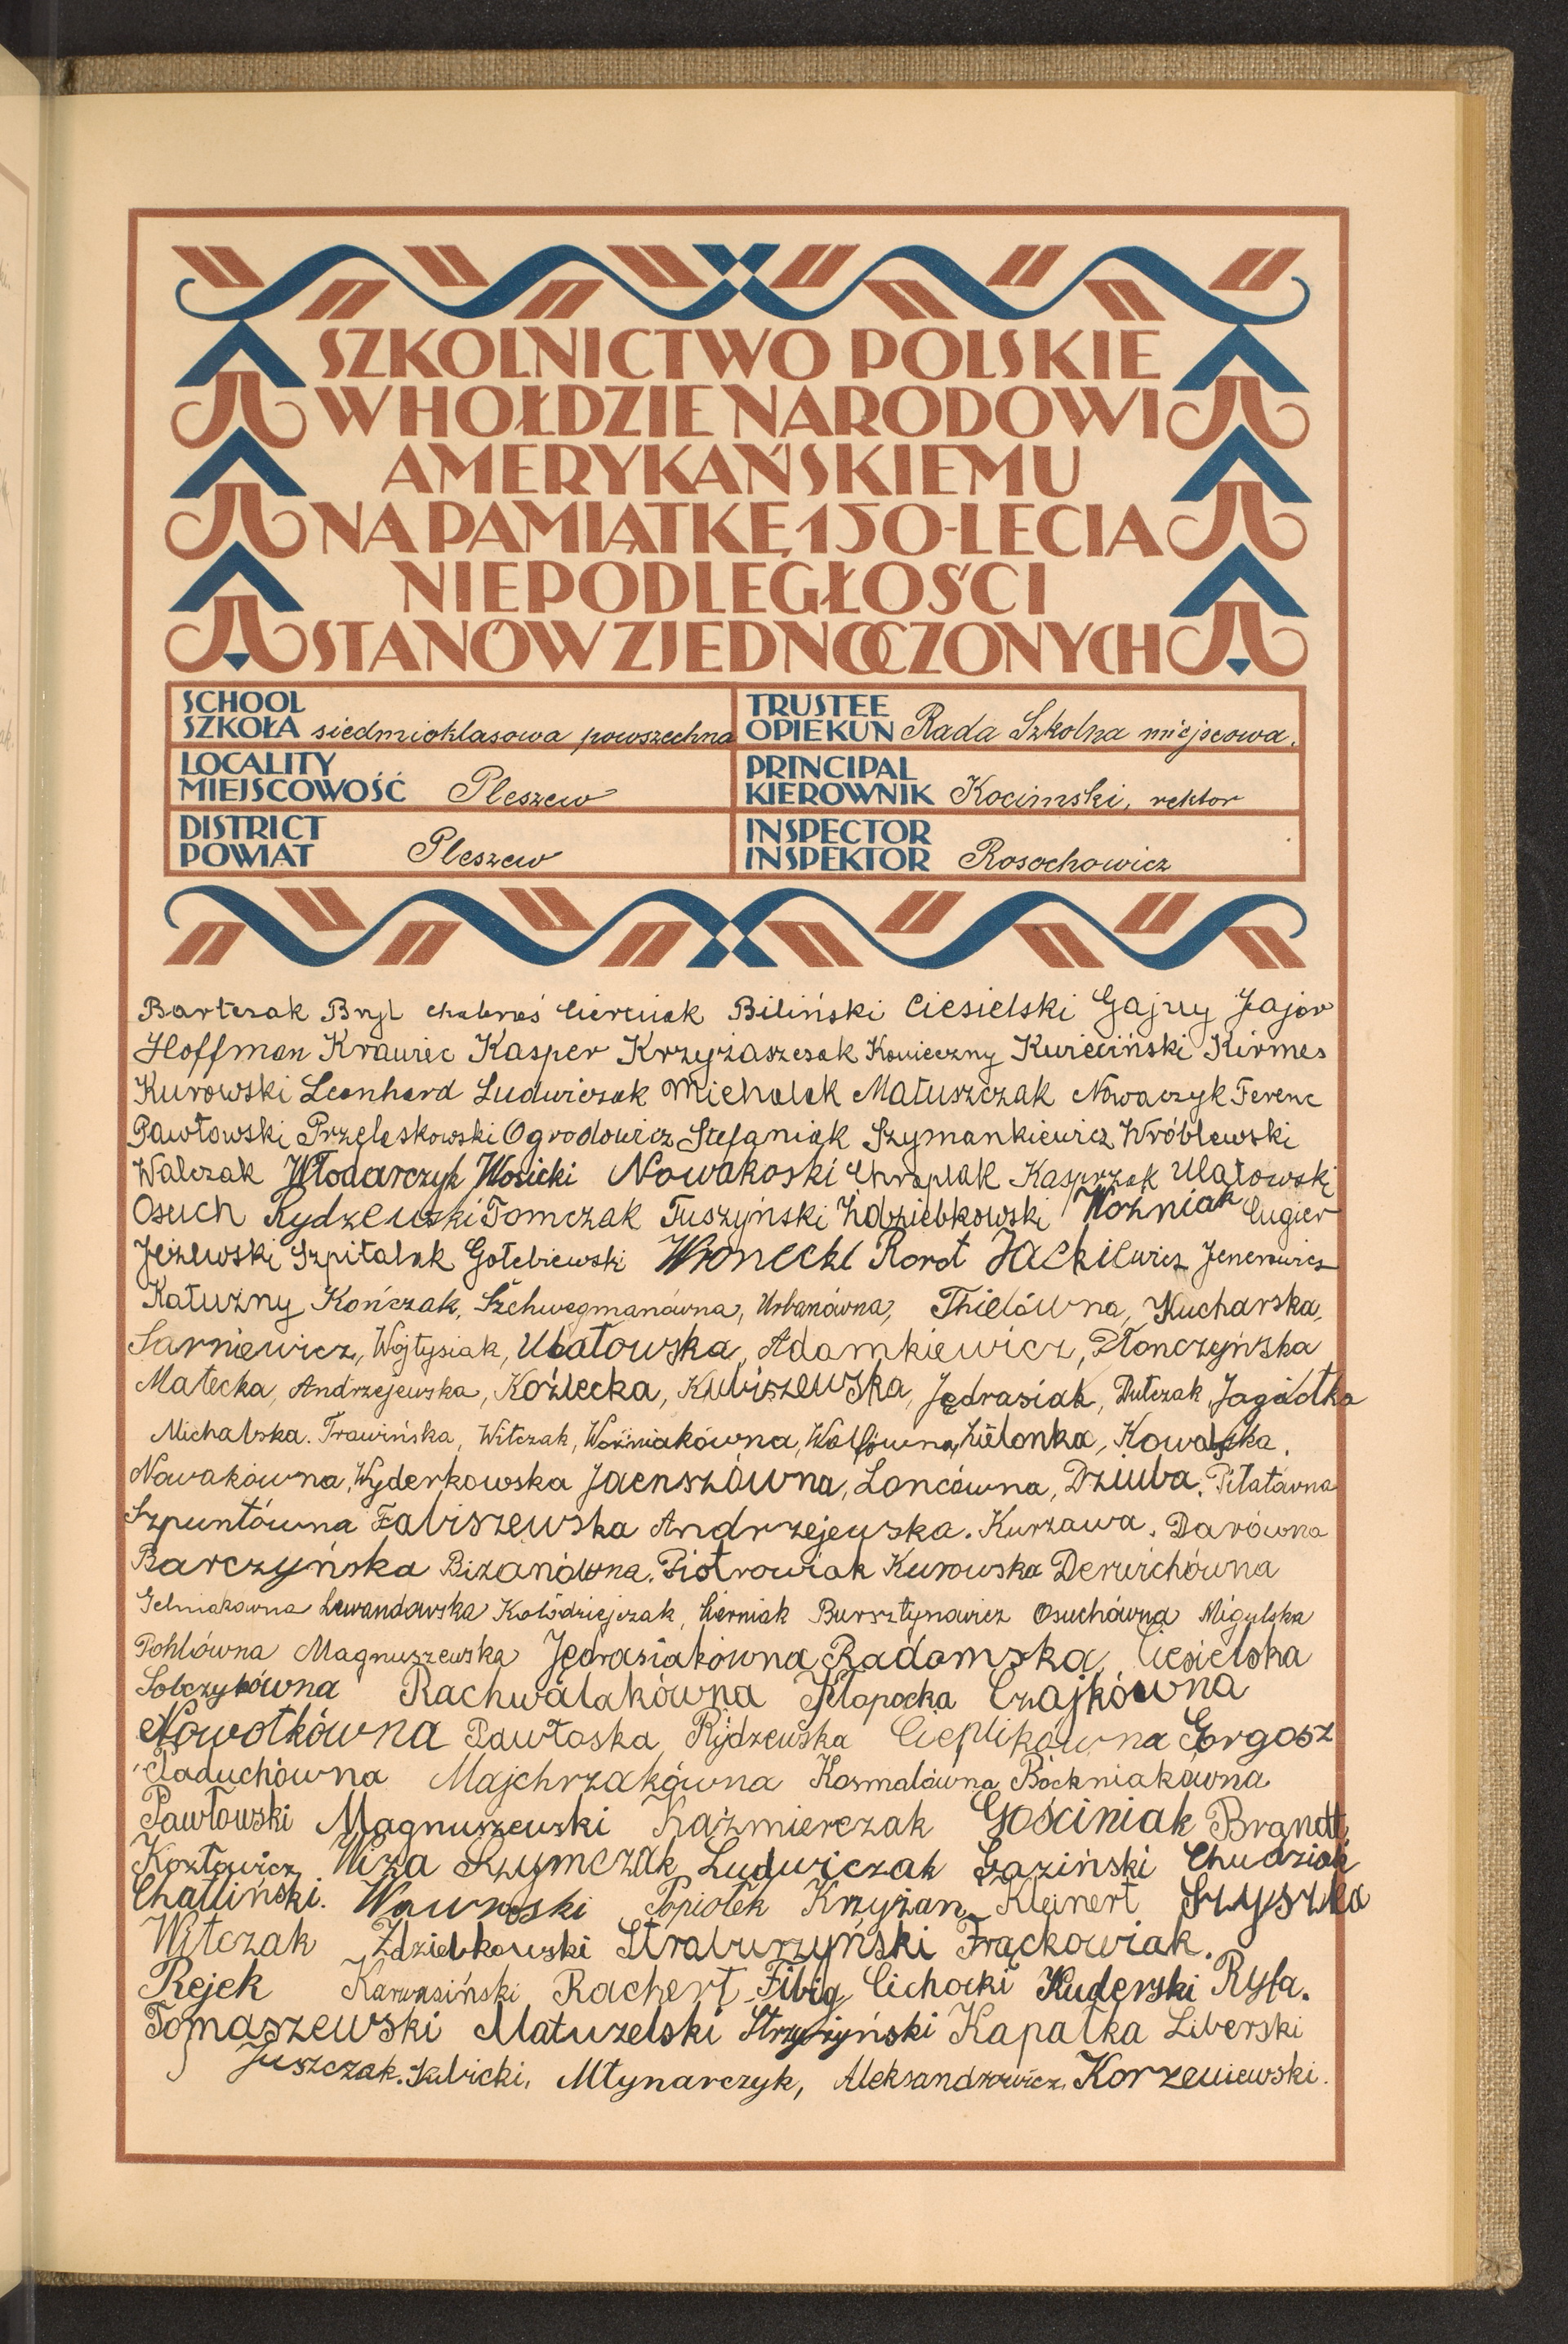 SZKOLNICTWO POLSKIE
W HOŁDZIE NARODOWI
AMERYKAŃSKIEMU
NA PAMIĄTKĘ 150-LECIA
NIEPODLEGŁOŚCI
STANÓW ZJEDNOCZONYCH
SCHOOL
SZKOŁA siedmioklasowa powszechna
TRUSTEE
OPIEKUN Rada Szkolna miejscowa.
LOCALITY
MIEJSCOWOŚĆ Pleszew
PRINCIPAL
KIEROWNIK Kocimski, rektor
DISTRICT
POWIAT Pleszew
INSPECTOR
INSPEKTOR Rosochowicz
Bartczak Bryl Cierniak Biliński Ciesielski Gajny Jajor
Hoffman Krawiec Kasper Krzyżaszczak Konieczny Kwieciński Kirmes
Kurowski Leonhard Ludwiczak Michalak Matuszczak Nowaczyk Ferenc
Pawłowski Przełaskowski Ogrodowicz Stefaniak Szymankiewicz Wróblewski
Walczak Włodarczyk Wosicki Nowakoski Chraplak Kasprzak Ulatowski
Osuch Rydzewski Tomczak Tuszyński Żdziebkowski Woźniak Cugier
Jeżewski Szpitalak Gołebiewski Wronecki Rordt Jackiewicz Jenerowicz
Kałużny Kończak, Szchwegmanówna, Urbanówna, Thielówna, Kucharska,
Sarniewicz, Wojtysiak, Ulatowska, Adamkiewicz, Płonczyńska
Małecka, Andrzejewska, Koźlecka, Kubiszewska, Jędrasiak, Dutczak, Jagódka
Michalska. Trawińska, Witczak, Woźniakówna, Wolfówna, Zielonka, Kowalska.
Nowakówna, Wyderkowska Jaenszówna, Loncówna, Dziuba, Piłatówna
Szpuntówna Fabiszewska Andrzejewska. Kurzawa. Darówna
Barczyńska Bizanówna. Piotrowiak Kurowska Derwichówna
Gelniakówna Lewandowska Kołodziejczak, Cierniak Bursztynowicz Osuchówna Migulska
Pohlówna Magnuszewska Jędrasiakówna Radomska, Ciesielska
Sobczykówna Rachwalakówna Kłapocka Czajkówna
Nowotkówna Pawłoska Rydzewska Cieplikówna Gorgosz
Paduchówna Majchrzakówna Kosmalówna Bockniakówna
Pawłowski Magnuszewski Kaźmierczak Gościniak Brandt
Kozłowicz Wiza Szymczak Ludwiczak Gaziński Chudziak
Challiński. Wawroski Popiołek Krzyżan Kleinert Szyszka
Witczak Zdziebkowski Straburzyński Frąckowiak.
Rejek Karwasiński Rachert Fibig Cichocki Kuderski Ryfa.
Tomaszewski Matuzelski Strzyżyński Kapałka Liberski
Juszczak. Kubicki, Młynarczyk, Aleksandrowicz, Korzeniewski.